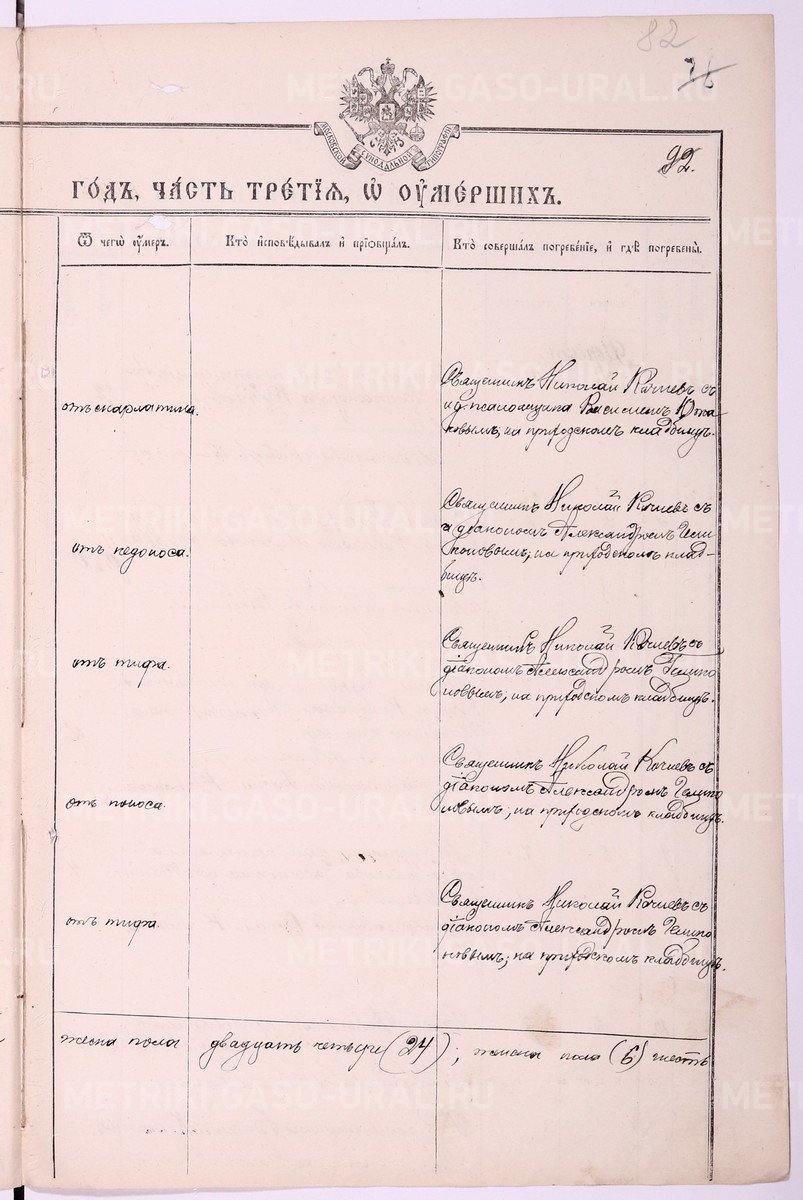 82
92.
МОСКОВСКОЙ СѴНОДАЛЬНОЙ ТИПОГРАФІИ
ГО́ДЪ, ЧА́СТЬ ТРЕ́ТІѦ, Ѡ҆ ОУ҆МЕ́РШИХЪ.
Ѿ чегѡ̀ оу҆́мер. Кто̀ и҆сповѣ́дывалъ и҆ прїѻбща́лъ. Кто̀ соверша́лъ погребе́нїе, и҆ гдѣ̀ погребены̀.
отъ скарлатина.
Священникъ Николай Кочневъ съ
и.д. псаломщика Василіемъ
на приходскомъ кладбищѣ.
отъ недоноса.
Священникъ Николай Кочневъ съ
діакономъ Александромъ
на приходскомъ клад-
бищѣ.
отъ тифа.
Священникъ Николай Кочневъ съ
діакономъ Александромъ
на приходскомъ кладбищѣ.
отъ поноса.
Священникъ Николай Кочневъ съ
діакономъ Александромъ
на приходскомъ кладбищѣ.
отъ тифа.
Священникъ Николай Кочневъ съ
діакономъ Александромъ
на приходскомъ кладбищѣ.
пола двадцать четыре (24); женска пола (6) шесть
METRIKI.GASO-URAL.RU